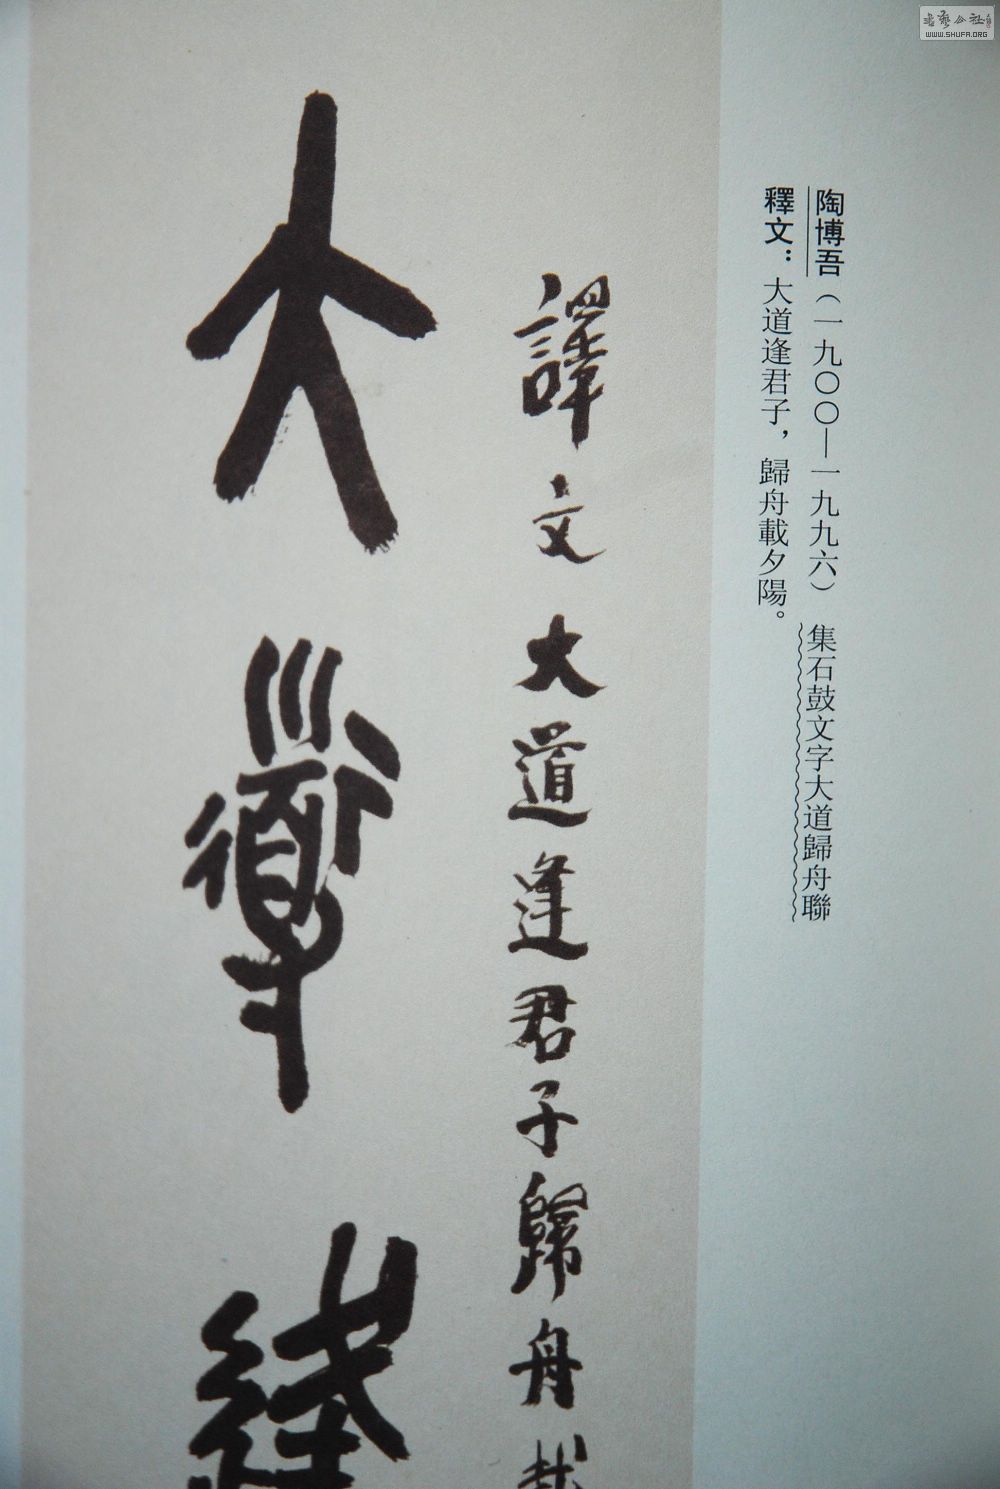 陶博吾（一九〇〇—一九九六）　集石鼓文字大道歸舟聯
釋文：大道逢君子，歸舟載夕陽。
譯文大道逢君子歸舟載
大道
WWW.SHUFA.ORG